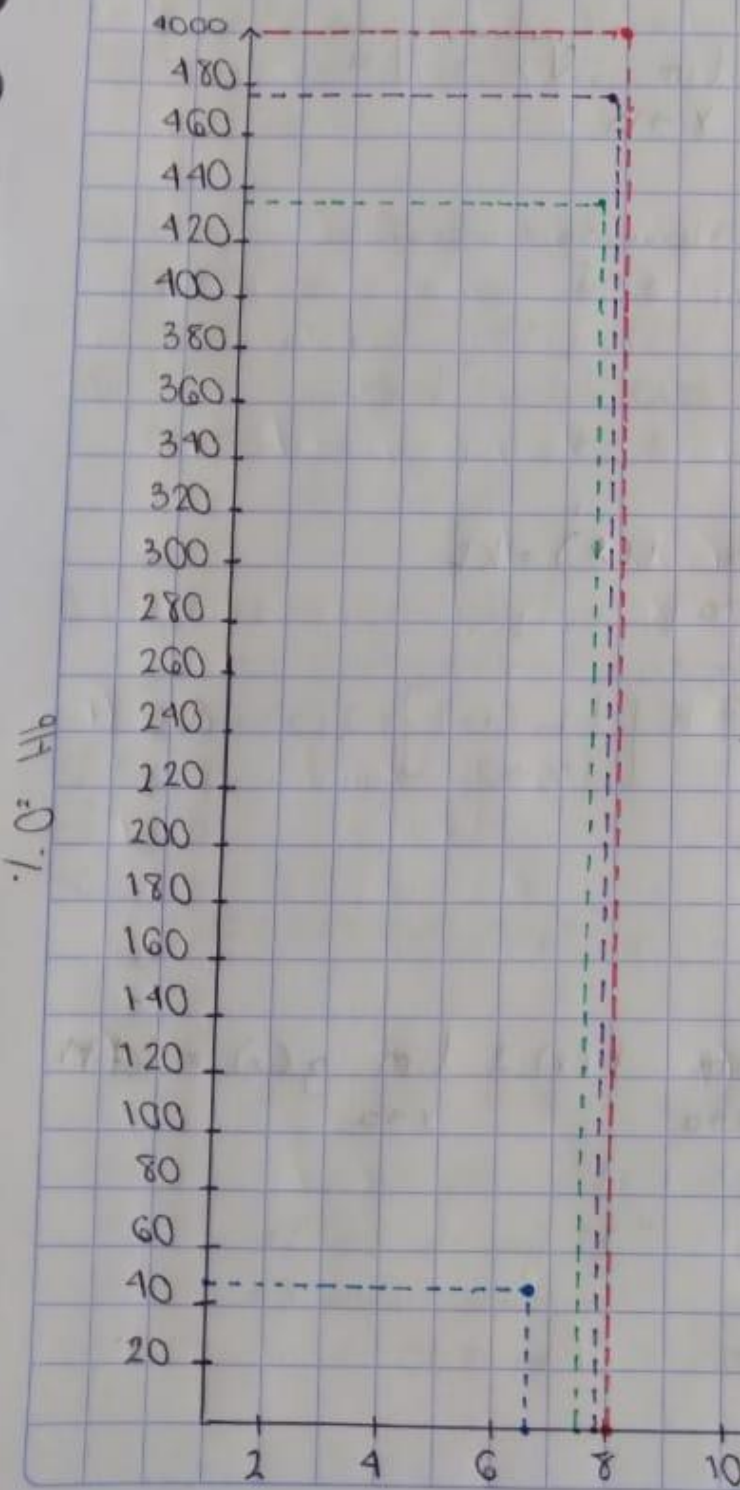 4000
480
460
440
420
400
380
360
340
320
300
280
260
240
220
200
180
160
140
120
100
80
60
40
20
%. O² Hb
2 4 6 8 10